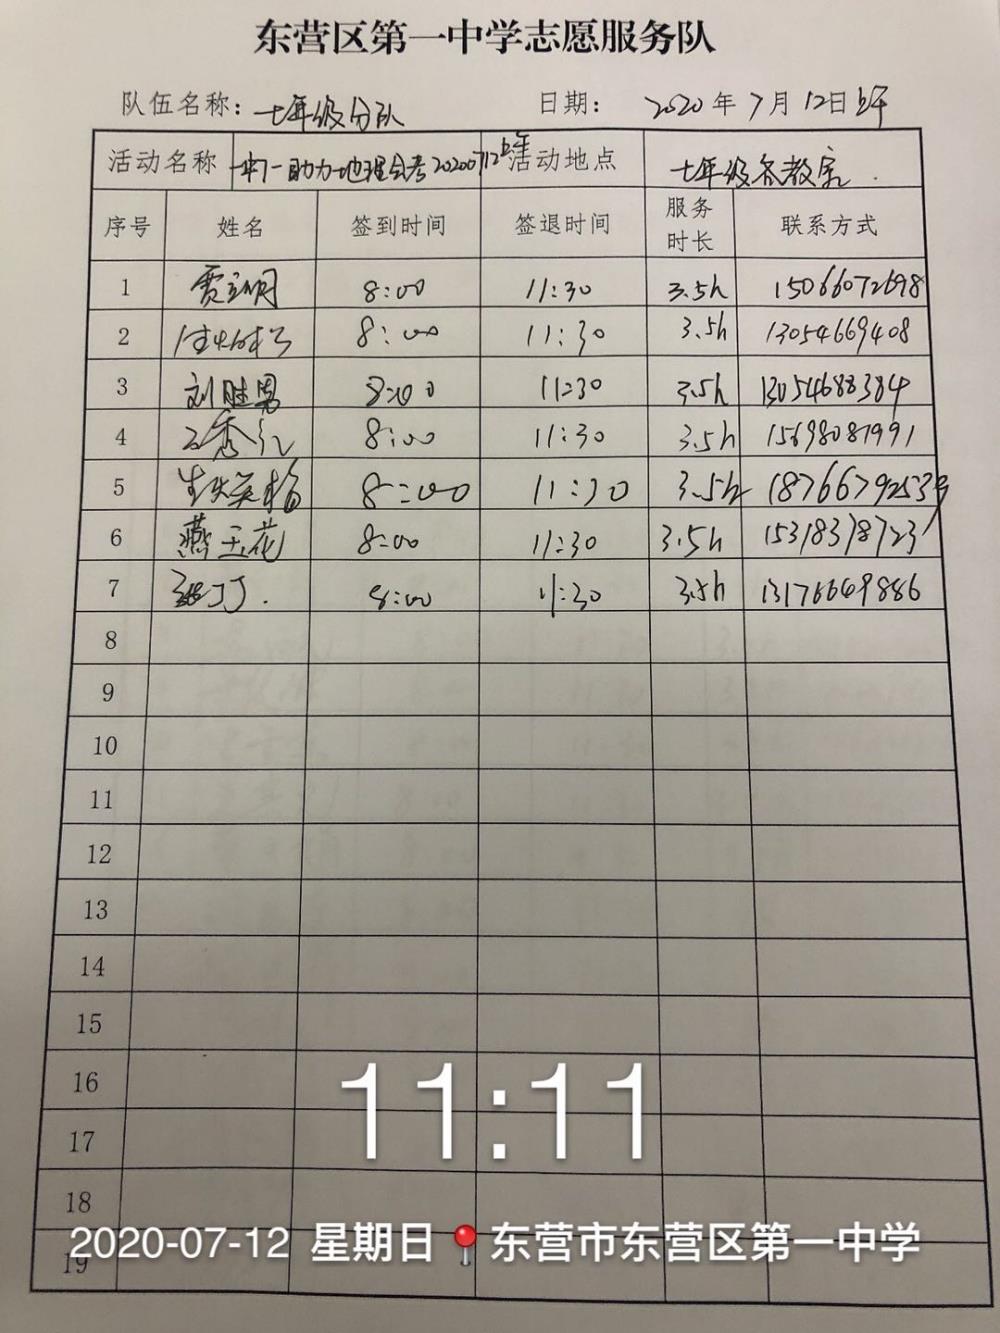 东营区第一中学志愿服务队
队伍名称：七年级分队 日期：2020年7月12日上午
活动名称 助力地理会考20200712上午 活动地点 七年级各教室.
序号 姓名 签到时间 签退时间 服务时长 联系方式
1 8:00 11:30 3.5h 15066072698
2 8:00 11:30 3.5h 13054669408
3 刘胜男 8:00 11:30 3.5h 13054688384
4 8:00 11:30 3.5h 15698087991
5 8:00 11:30 3.5h 18766792533
6 燕玉花 8:00 11:30 3.5h 15318318723
7 8:00 11:30 3.5h 13176649886
8
9
10
11
12
13
14
15
16
11:11
17
18
2020-07-12 星期日 东营市东营区第一中学
19